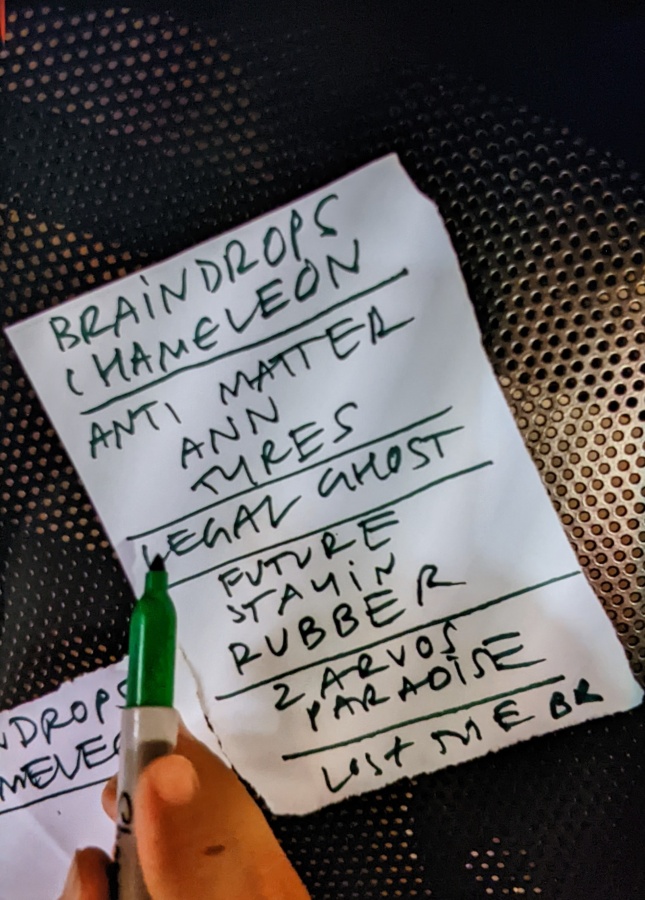 BRAINDROPS
CHAMELEON
ANTI MATTER
ANN
TYRES
LEGAL GHOST
FUTURE
STAYIN
RUBBER
2 ARVOS
PARADISE
LOST THE BR
NDROPS
MELEO